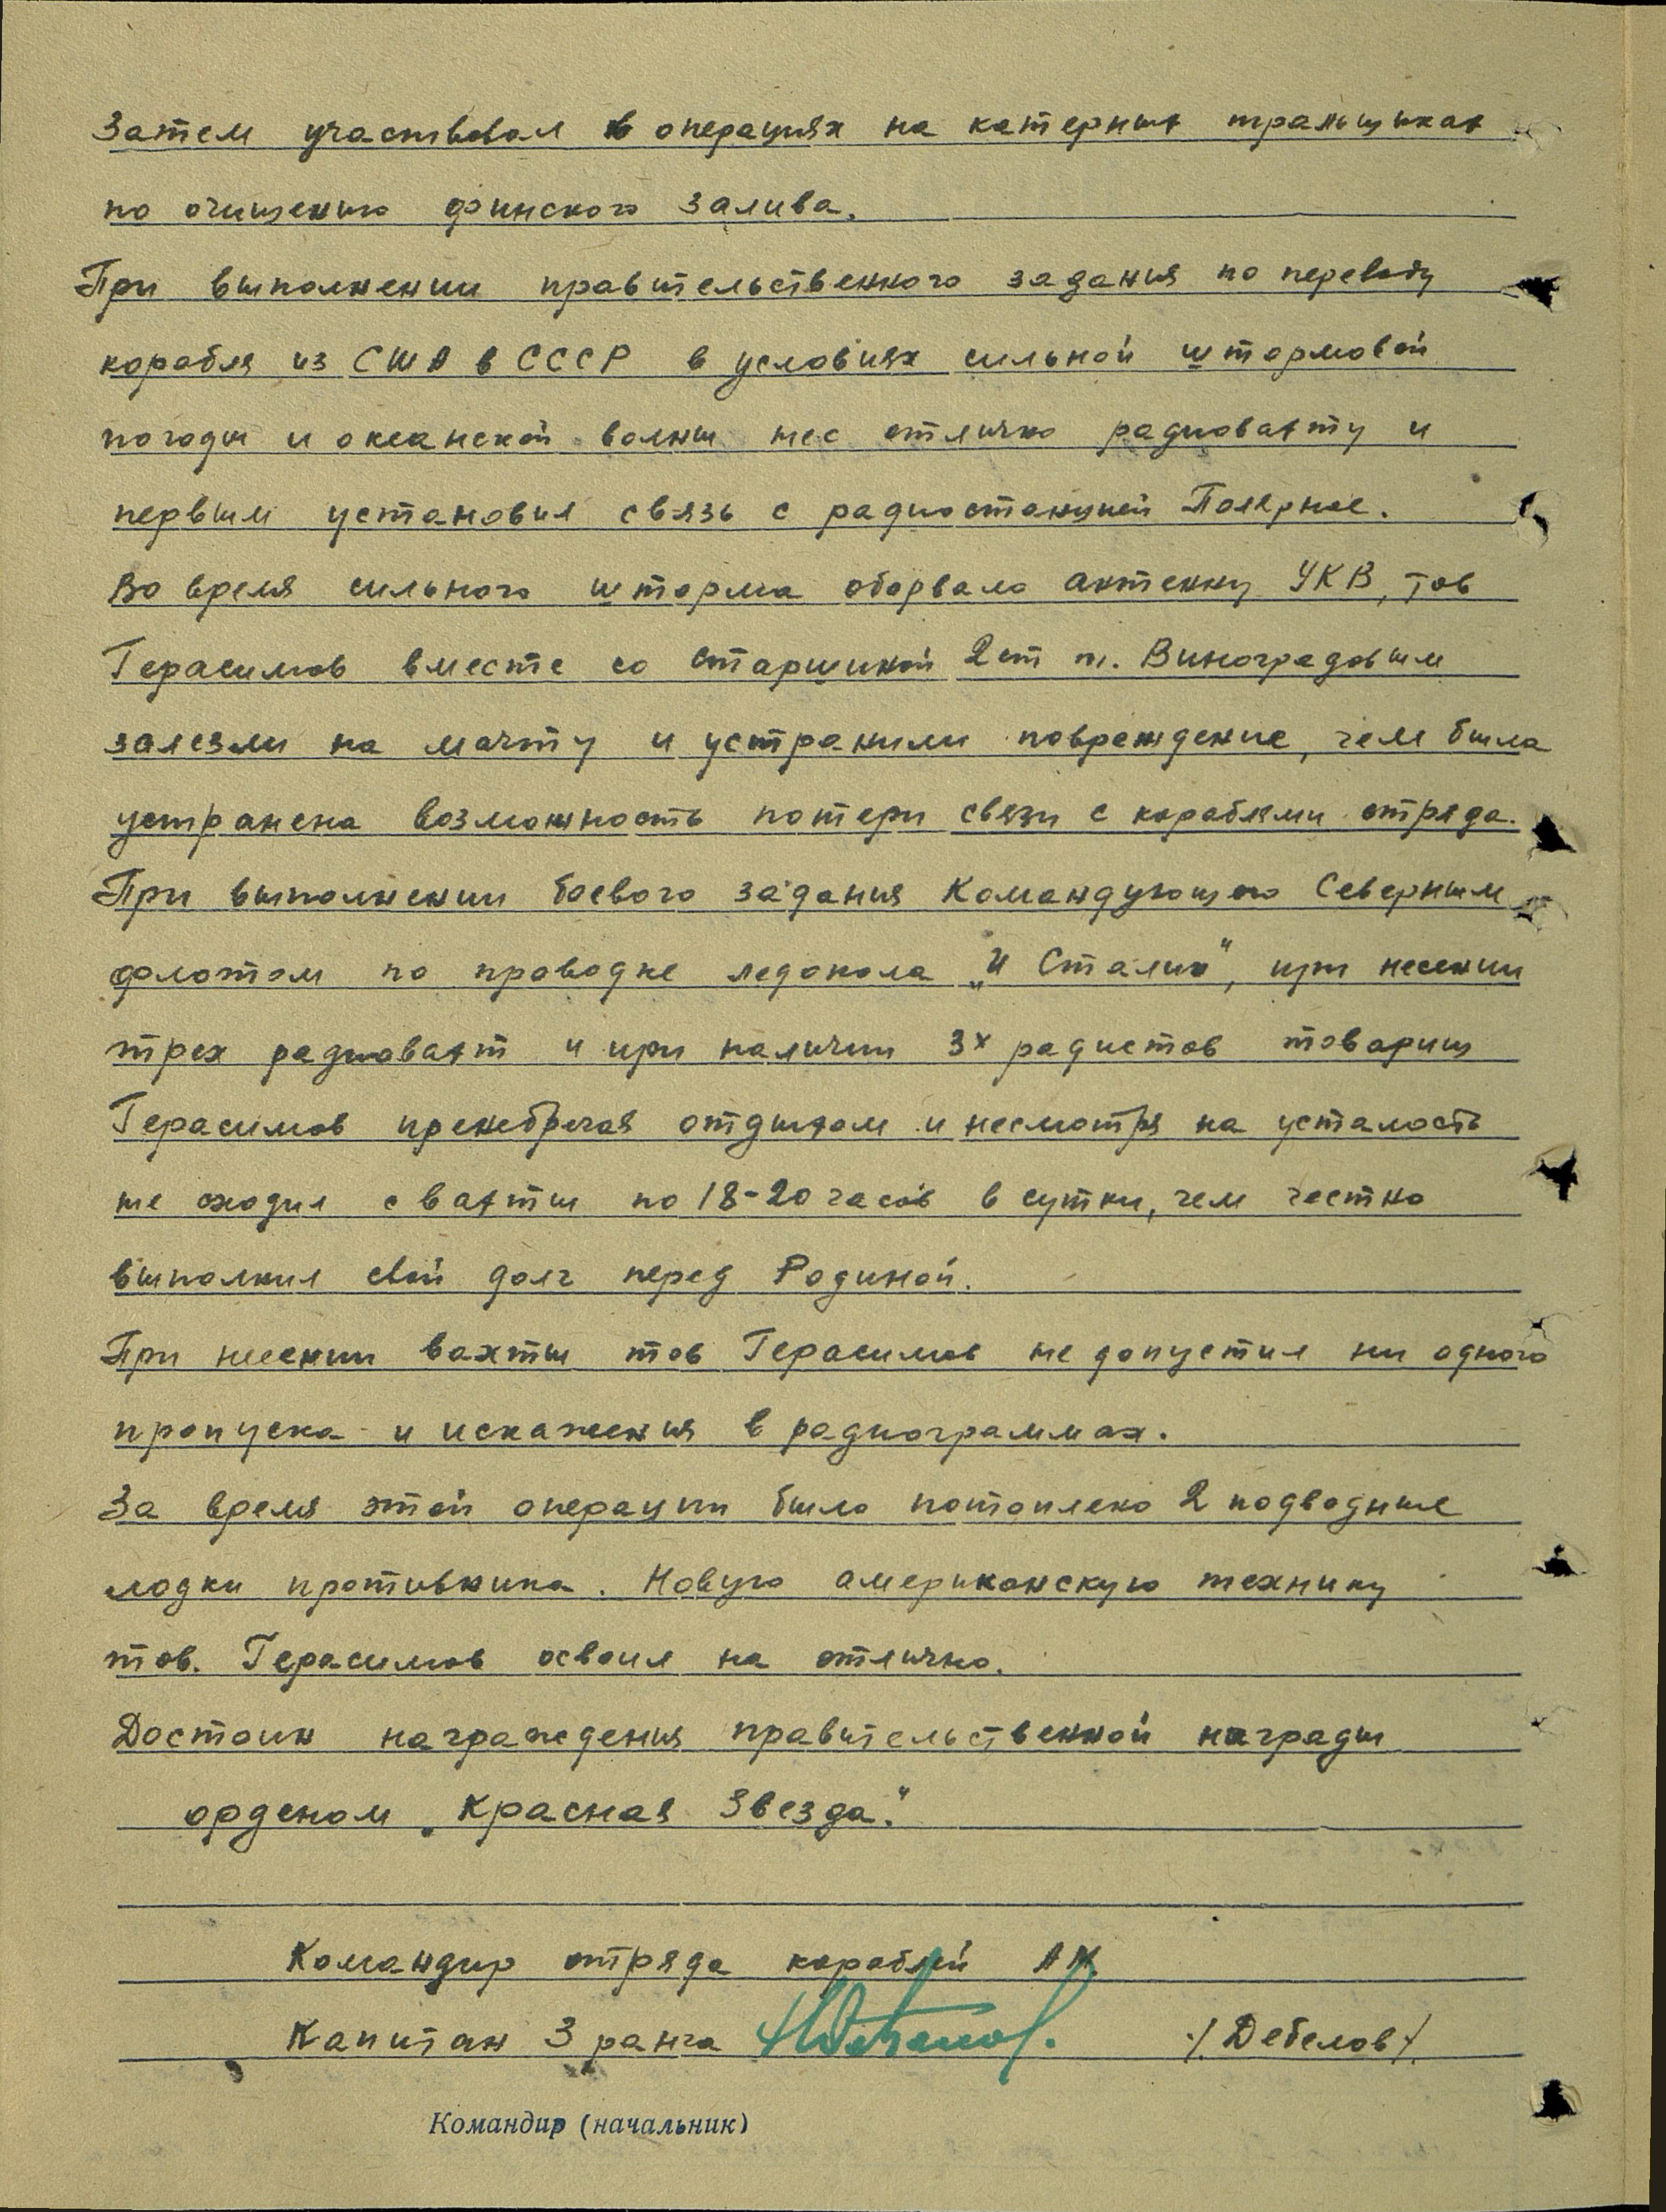 Затем участвовал в операциях на катерных тральщиках
по очищению финского залива.
При выполнении правительственного задания по переводу
корабля из США в СССР в условиях сильной штормовой
погоды и океанской волны нес отлично радиовахту и
первым установил связь с радиостанцией Полярное.
Во время сильного шторма оборвало антенну УКВ, тов
Герасимов вместе со старшиной 2 ст т. Виноградовым
залезли на мачту и устранили повреждение, чем была
устранена возможность потери связи с кораблями отряда.
При выполнении боевого задания Командующего Северным
флотом по проводке ледокола „И Сталин", при несении
трех радиовахт и при наличии 3х радистов товарищ
Герасимов пренебрегая отдыхом и несмотря на усталость
не сходил с вахты по 18-20 часов в сутки, чем честно
выполнил свой долг перед Родиной.
При несении вахты тов Герасимов не допустил ни одного
пропуска и искажения в радиограммах.
За время этой операции было потоплено 2 подводные
лодки противника. Новую американскую технику
тов. Герасимов освоил на отлично.
Достоин награждения правительственной награды
орденом „Красная Звезда."
Командир отряда кораблей АК
Капитан 3 ранга /Дебелов/.
Командир (начальник)